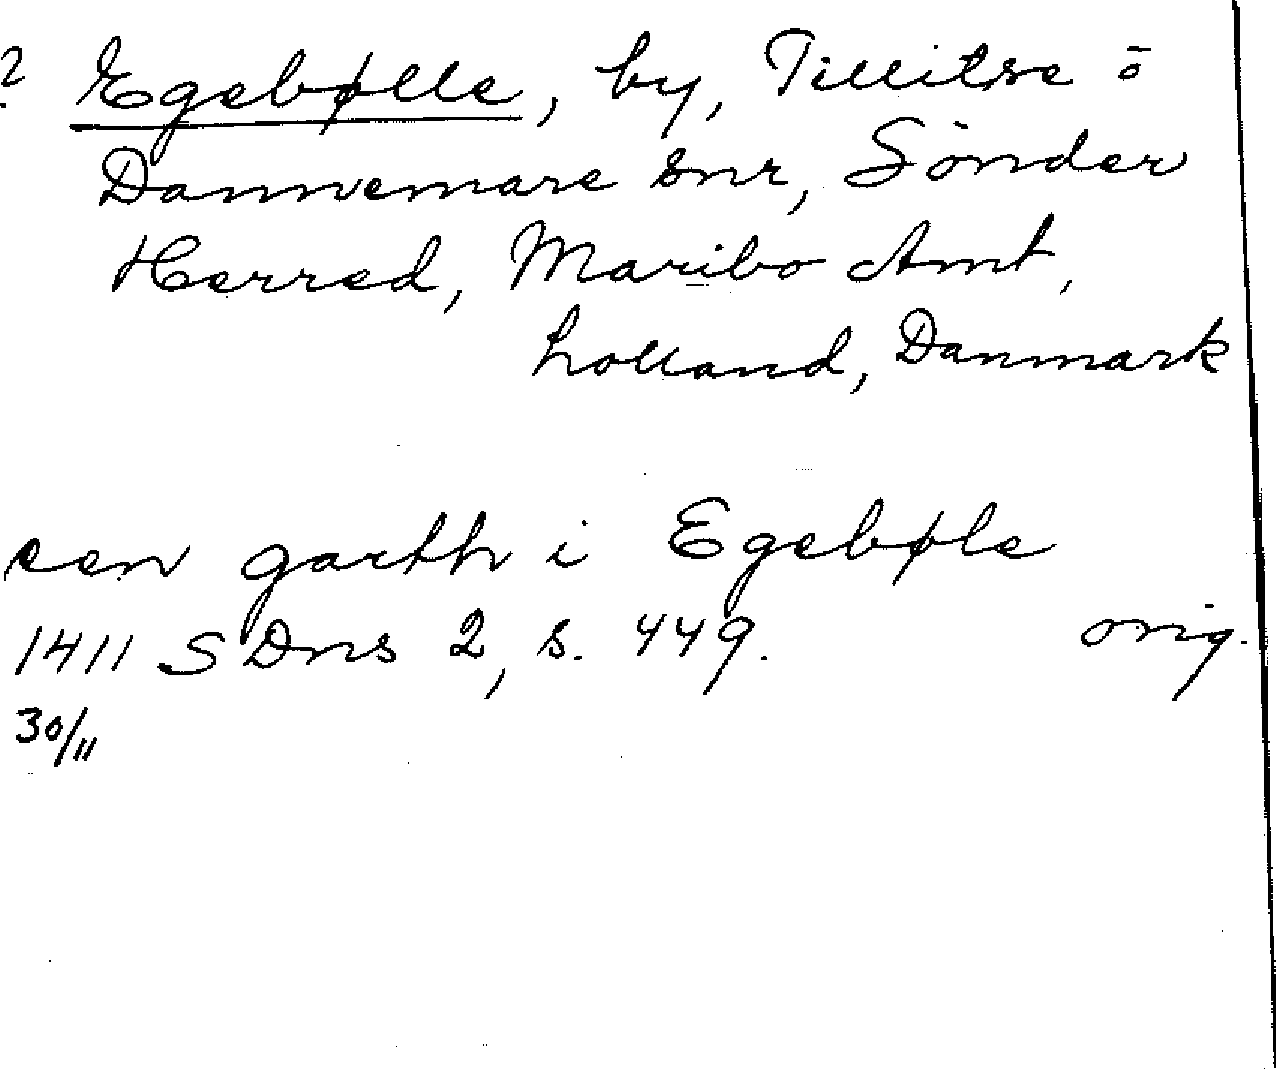 ? Egebølle, by, Tillitse o
Dannemare snr, Sönder
Herred, Maribo Amt,
Lolland, Danmark
een garth i Egebøle
1411 SDns 2, s. 449. orig.
30/11